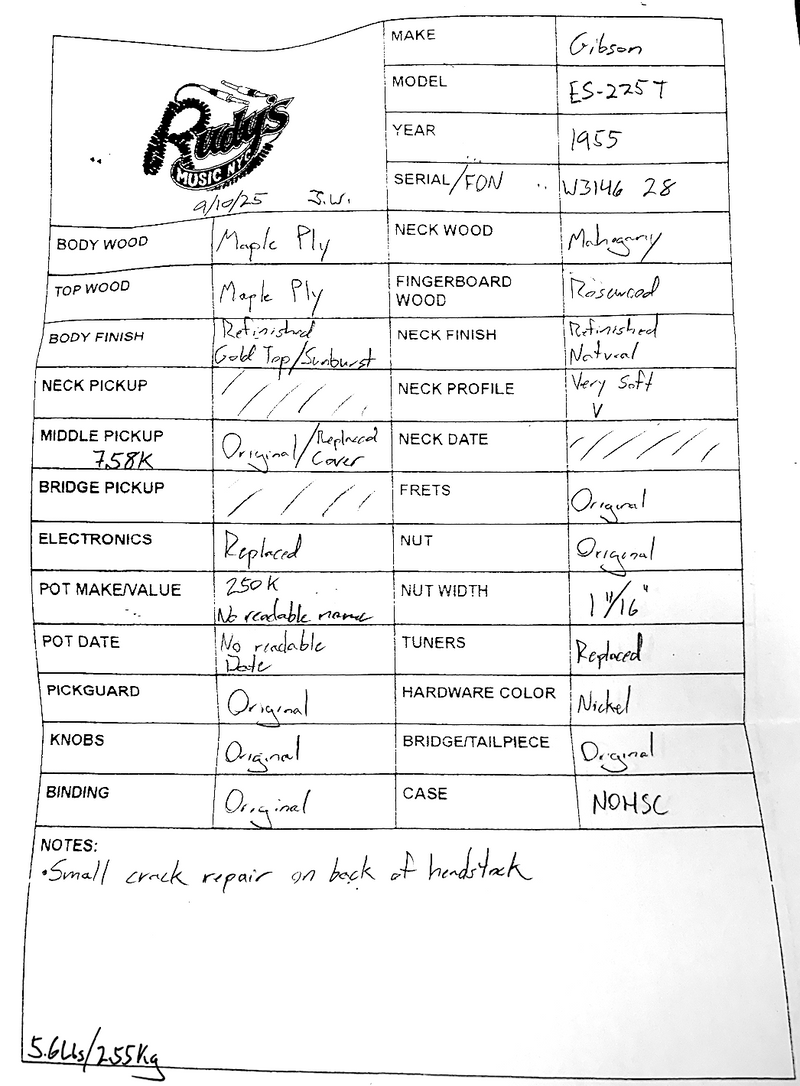 Rudy's
MUSIC NYC
9/10/25 J.W.
MAKE Gibson
MODEL ES-225T
YEAR 1955
SERIAL/FON W3146 28
BODY WOOD Maple Ply
NECK WOOD Mahogany
TOP WOOD Maple Ply
FINGERBOARD WOOD Rosewood
BODY FINISH Refinished
Gold Top/Sunburst
NECK FINISH Refinished
Natural
NECK PICKUP
NECK PROFILE Very Soft
V
MIDDLE PICKUP
7.58K
Original/Replaced
Cover
NECK DATE
BRIDGE PICKUP
FRETS Original
ELECTRONICS Replaced
NUT Original
POT MAKE/VALUE 250K
No readable name
NUT WIDTH 1 11/16"
POT DATE No readable
Date
TUNERS Replaced
PICKGUARD Original
HARDWARE COLOR Nickel
KNOBS Original
BRIDGE/TAILPIECE Original
BINDING Original
CASE NOHSC
NOTES:
•Small crack repair on back of headstock
5.6Lbs/2.55Kg